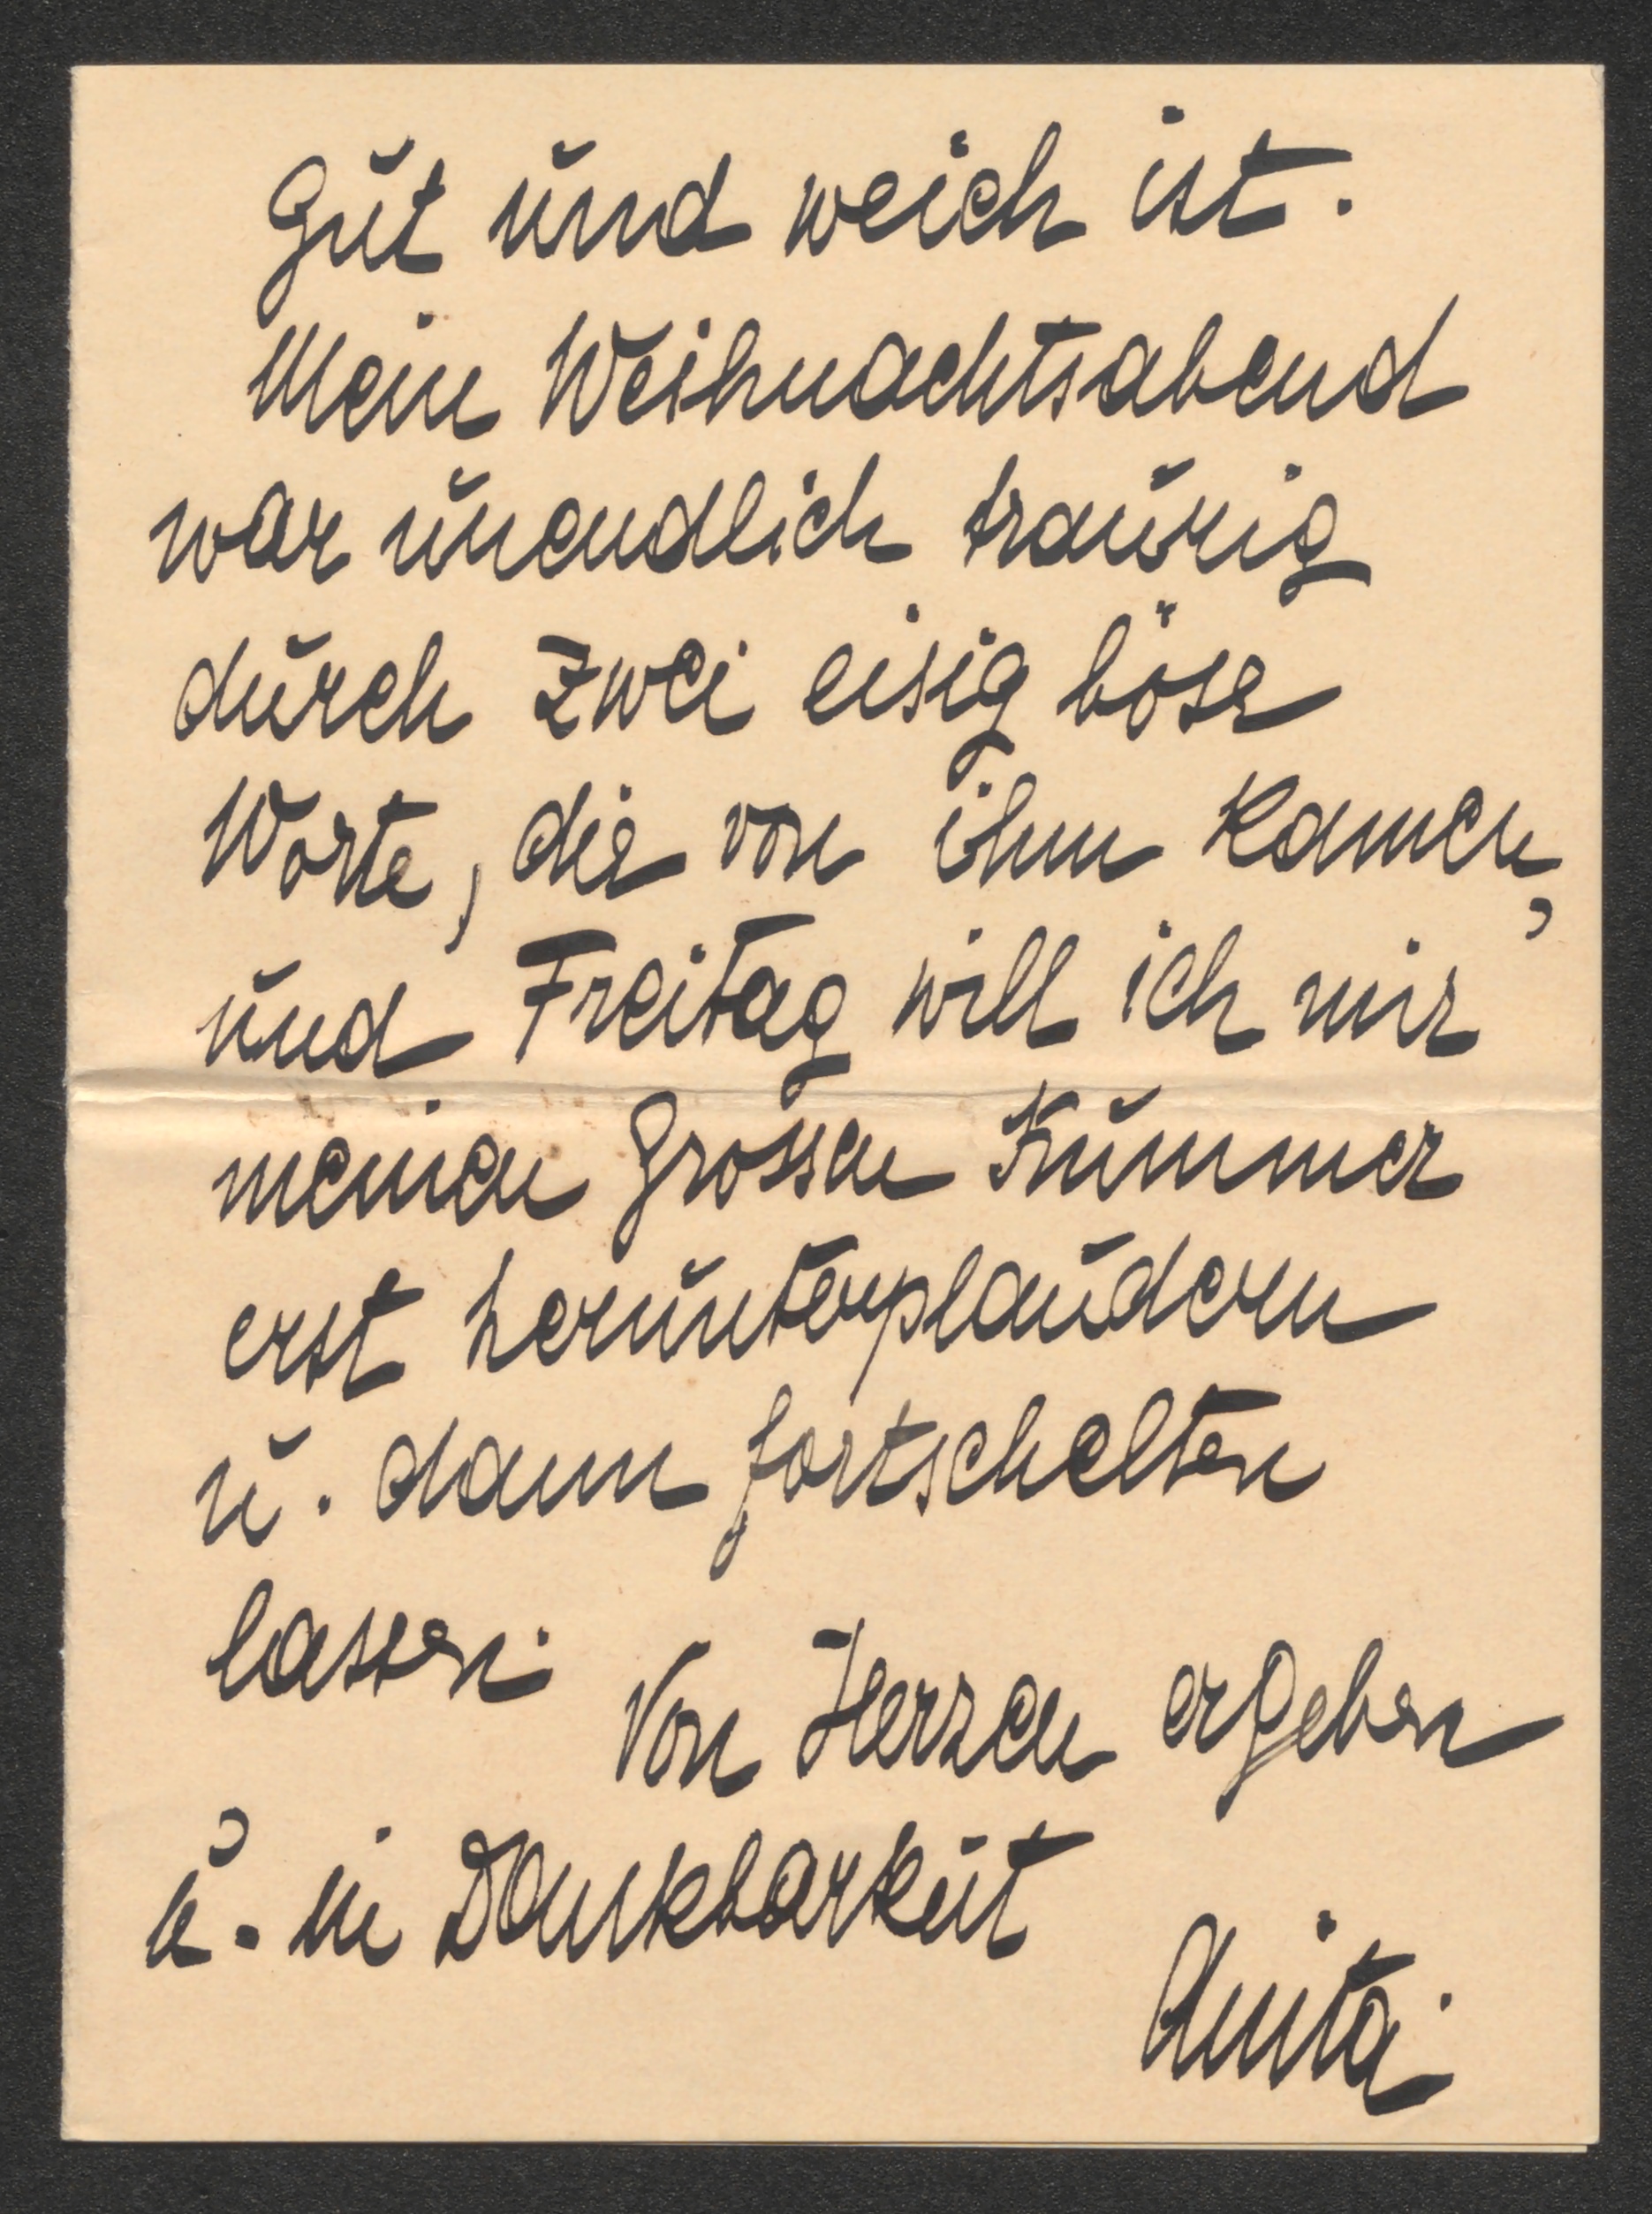 gut und weich ist.
Mein Weihnachtsabend
war unendlich traurig
durch zwei eisig böse
Worte, die von ihm kamen,
und Freitag will ich mir
meinen grossen Kummer
erst herunterplaudern
u. dann fortschelten
lassen.
Von Herzen ergeben
u. in Dankbarkeit
Anita.